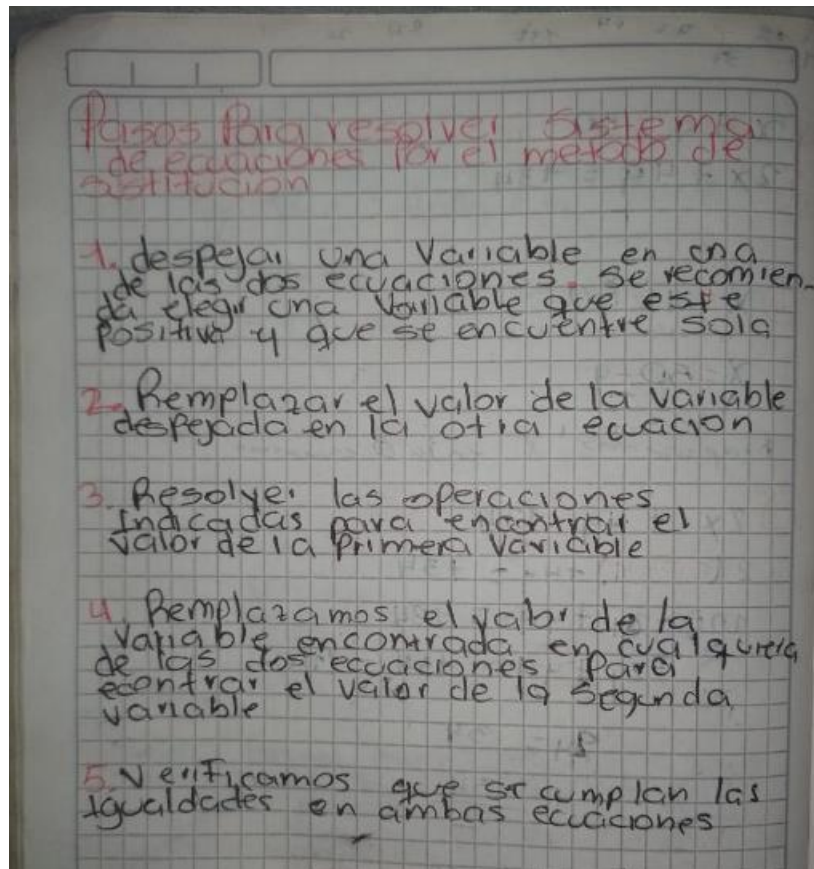 Pasos Para resolver Sistema
de ecuaciones Por el metodo de
sustitucion
1. despejar una Variable en una
de las dos ecuaciones. Se recomien-
da elegir una Variable que este
Positiva y que se encuentre sola
2. Remplazar el valor de la variable
despejada en la otra ecuacion
3. Resolver las operaciones
Indicadas para encontrar el
valor de la Primera Variable
4. Remplazamos el valor de la
Variable encontrada en cualquiera
de las dos ecuaciones Para
econtrar el valor de la Segunda
variable
5. Verificamos que se cumplan las
Igualdades en ambas ecuaciones